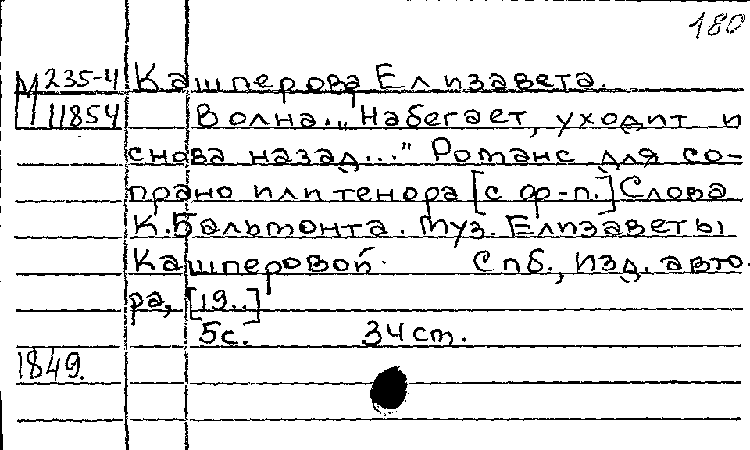 180
М 235-4 Кашперова Елизавета.
11854 Волна.. „Набегает, уходит и
снова назад..." Романс для со-
прано или тенора [с ф-п.] Слова
К. Бальмонта. Муз. Елизаветы
Кашперовой. Спб., изд. авто-
ра, [19..]
5с. 34 ст.
1849.